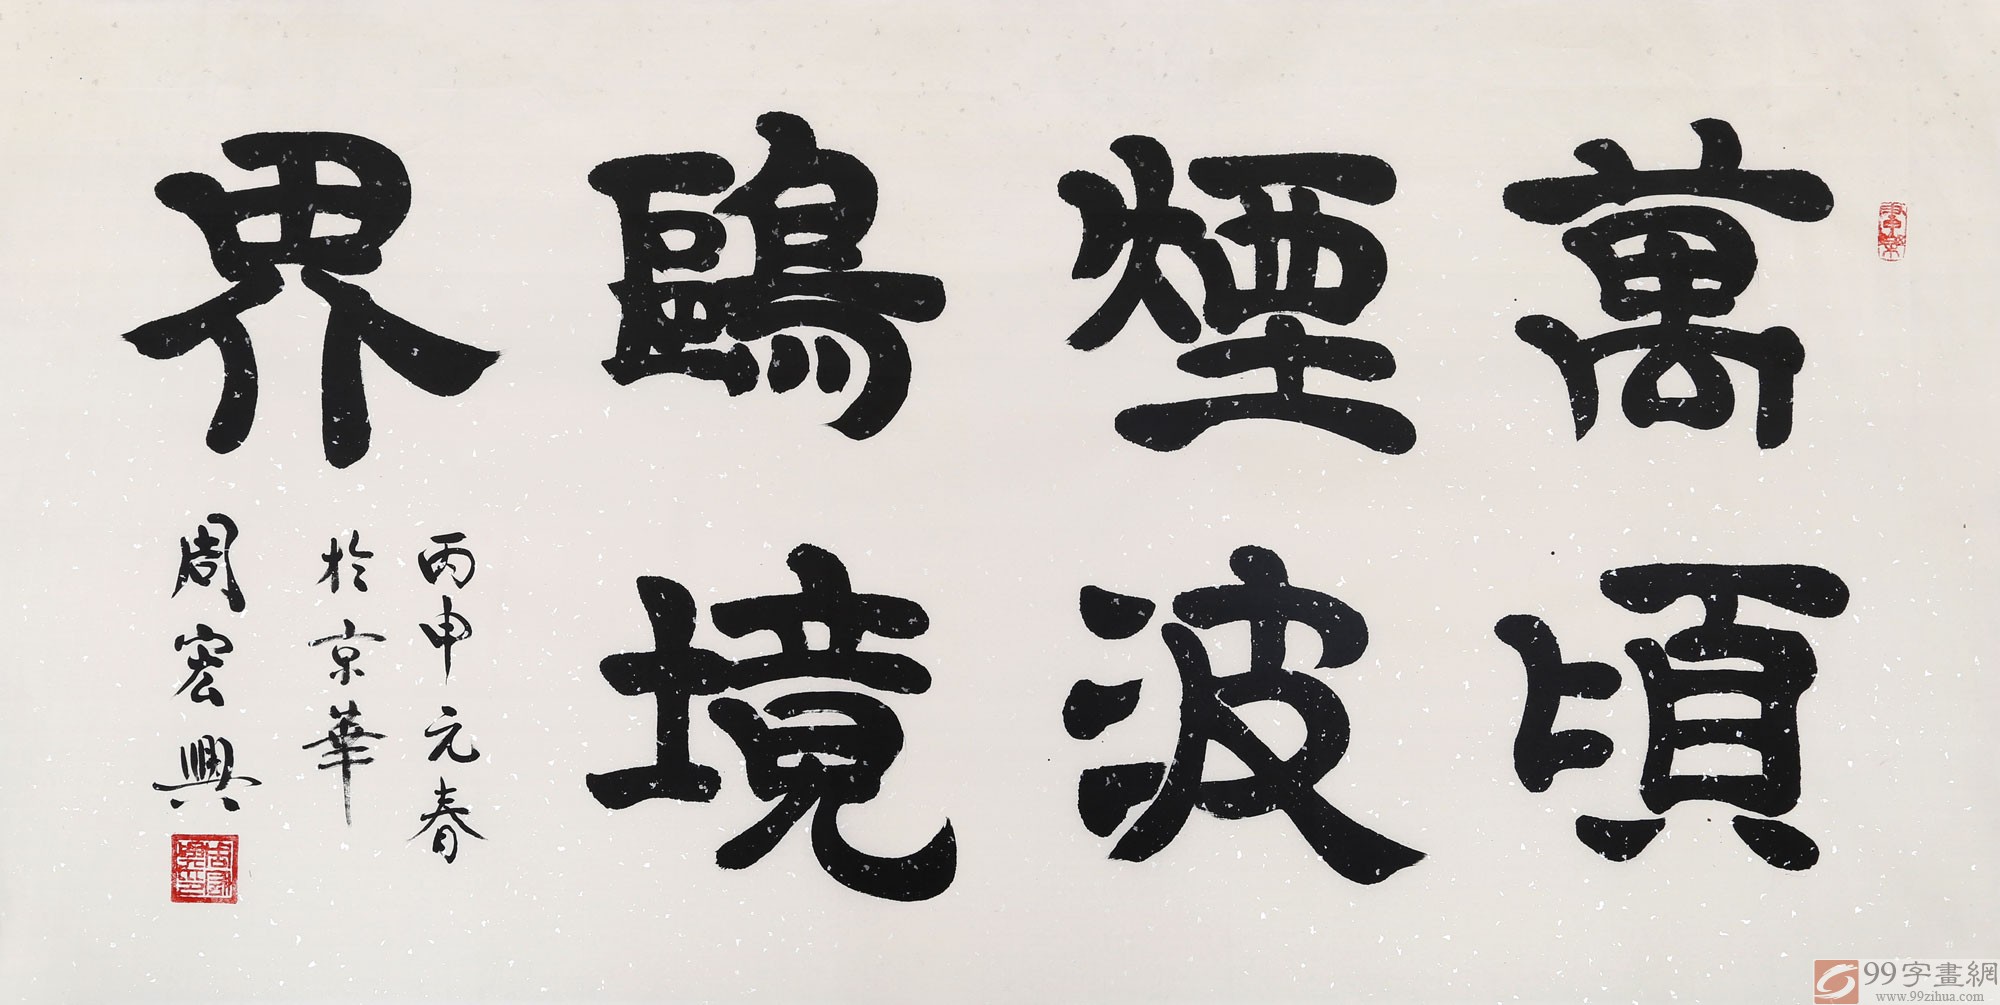 萬頃
煙波
鷗境
界
丙申元春
於京華
周宏興
99字畫網
www.99zihua.com